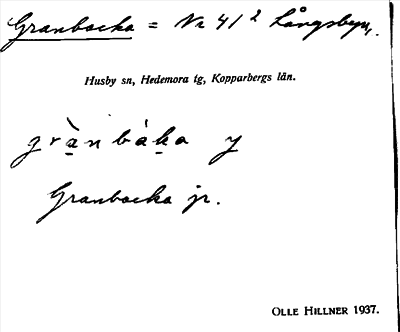 Granbacka = Nr 41² Långsbyn.
Husby sn, Hedemora tg, Kopparbergs län.
grànbák̠a y
Granbacka jr.
OLLE HILLNER 1937.